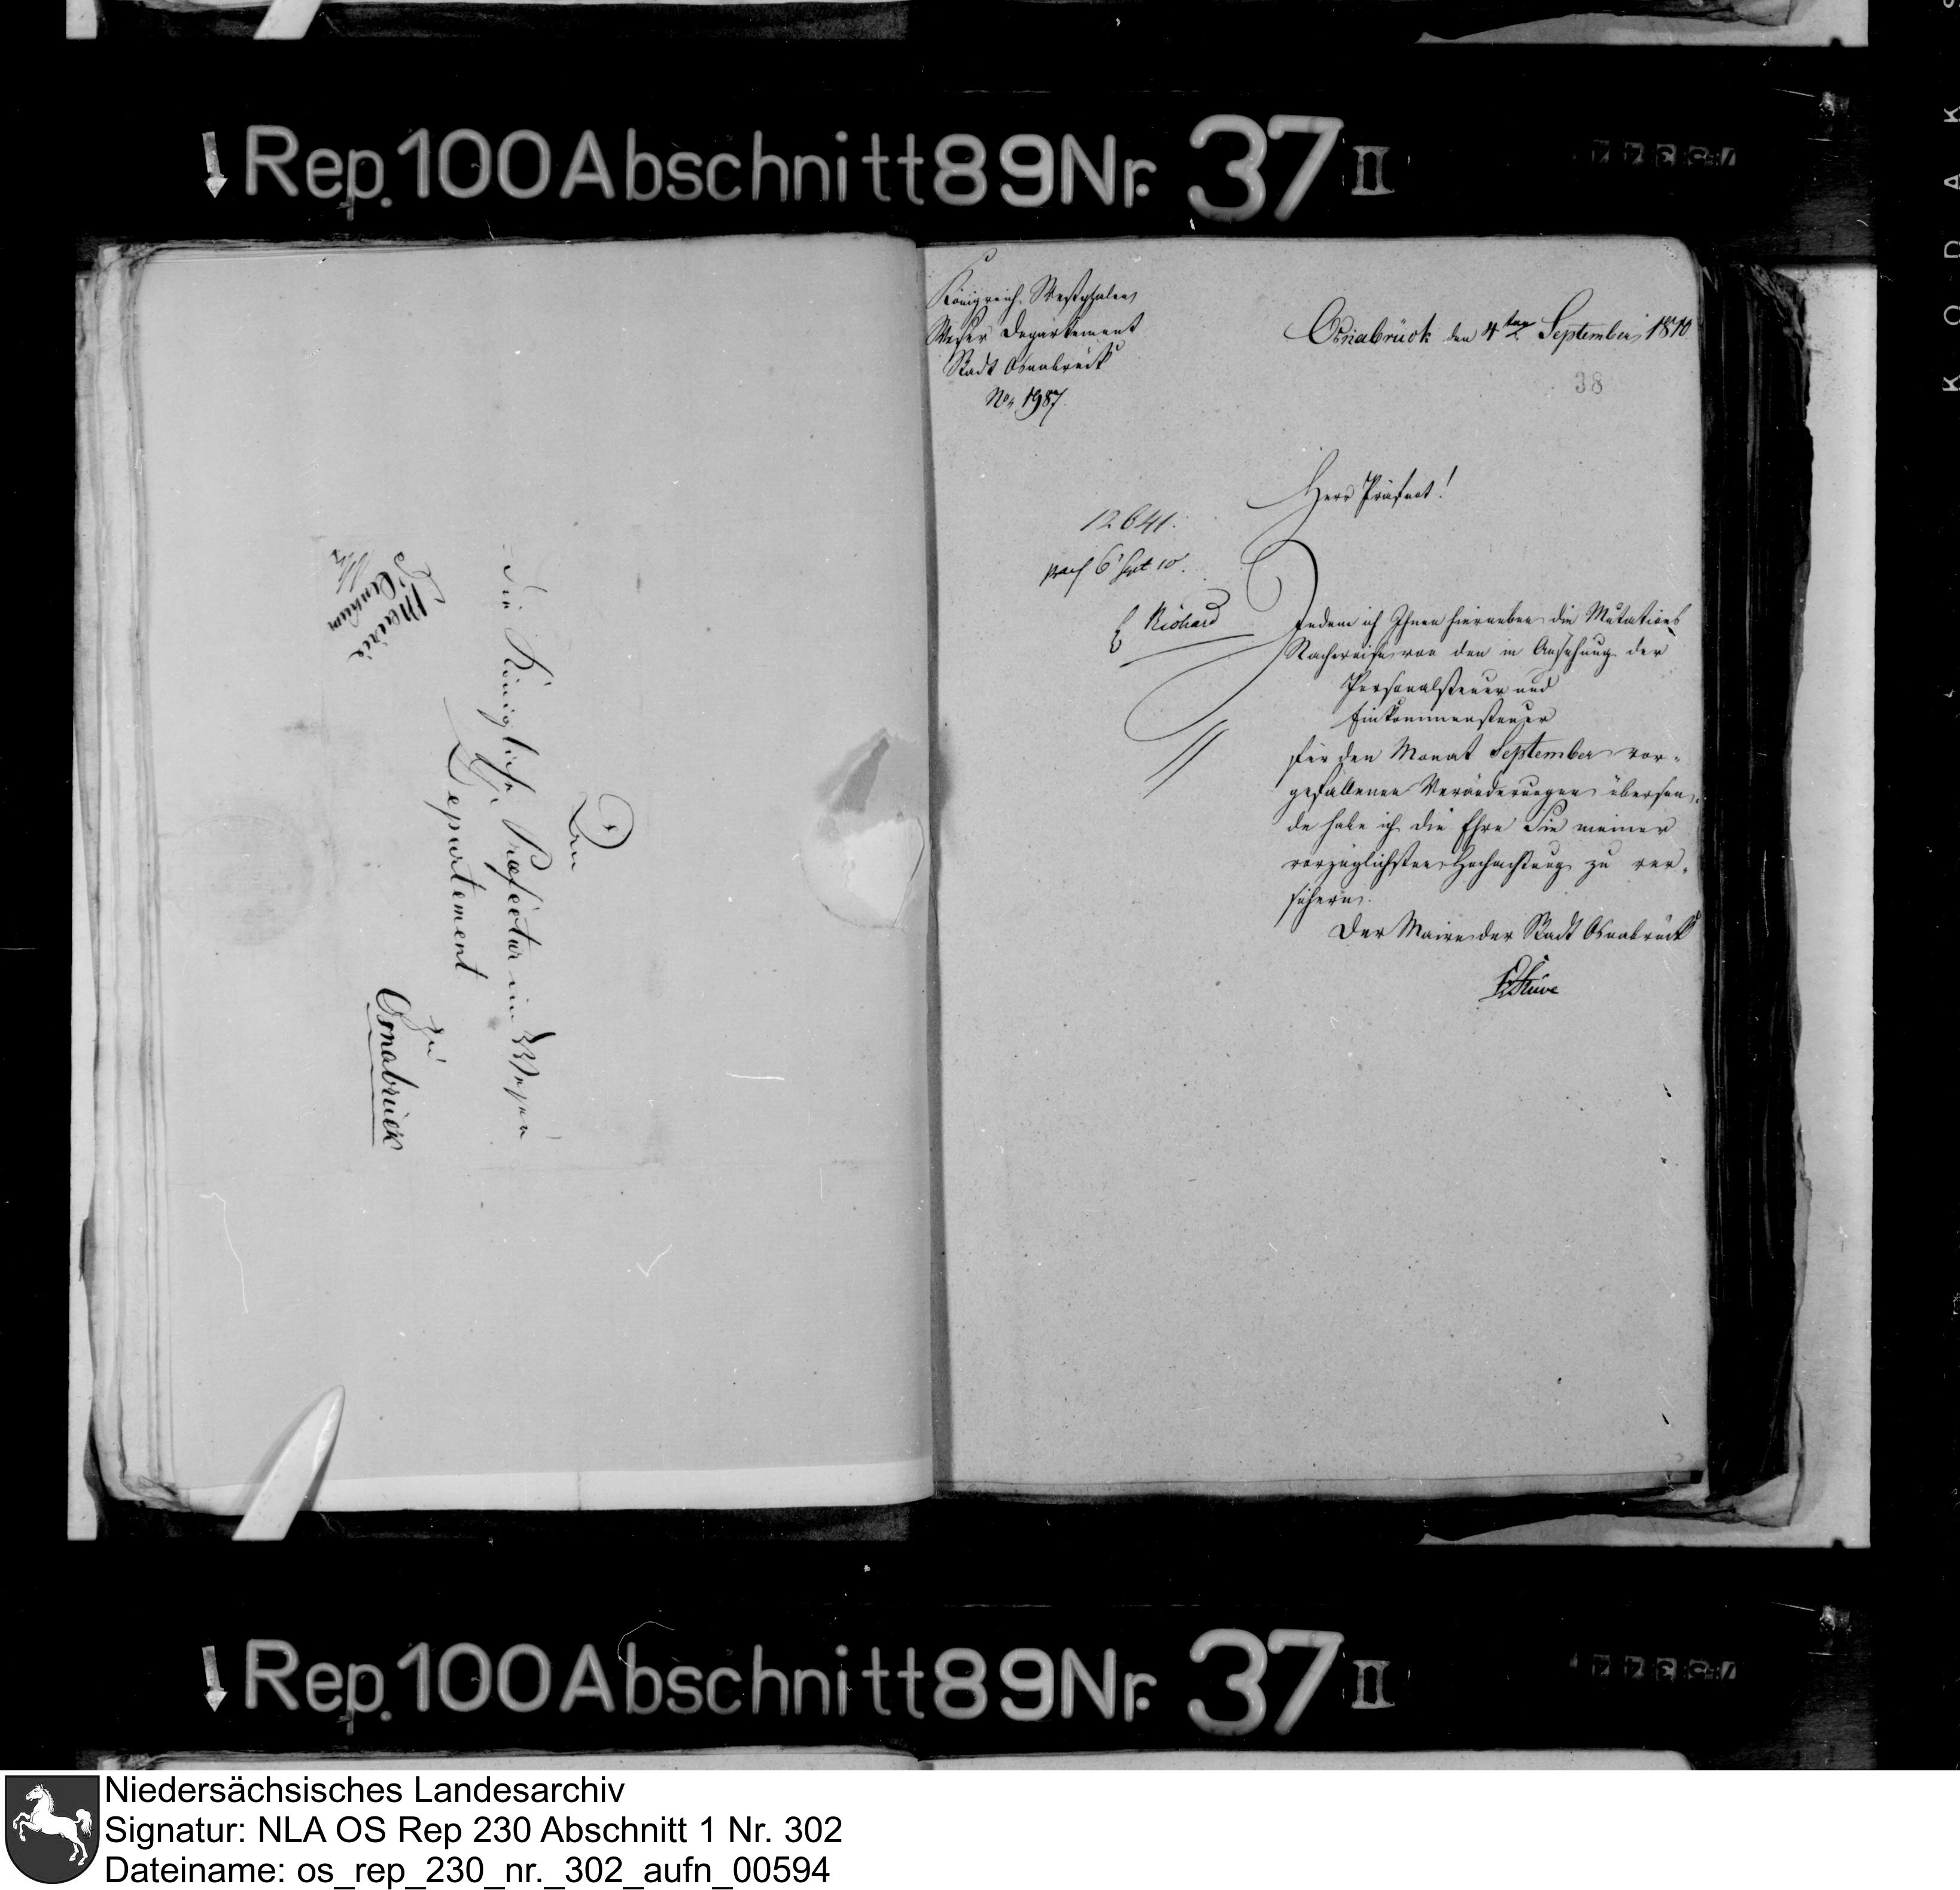 Rep. 100 Abschnitt 89 Nr. 37 II
KODAK S
Den
die Königliche Præfectur im Weser
Departement
zu
Osnabrück
Maire
Königreich Westphalen
Weser Departement
Stadt Osnabrück
No. 1987
Osnabrück den 4ten September 1810
38
Herr Präfect!
12641.
6 Sept 10.
Richard
Indem ich Ihnen hierneben die Mutations
Nachweise von den in Ansehung der
Personalsteuer und
Einkommensteuer
für den Monat September vor-
gefallenen Veränderungen übersen-
de habe ich die Ehre Sie meiner
vorzüglichsten Hochachtung zu ver-
sichern.
Der Maire der Stadt Osnabrück
Stüve
Rep. 100 Abschnitt 89 Nr. 37 II
Niedersächsisches Landesarchiv
Signatur: NLA OS Rep 230 Abschnitt 1 Nr. 302
Dateiname: os_rep_230_nr._302_aufn_00594